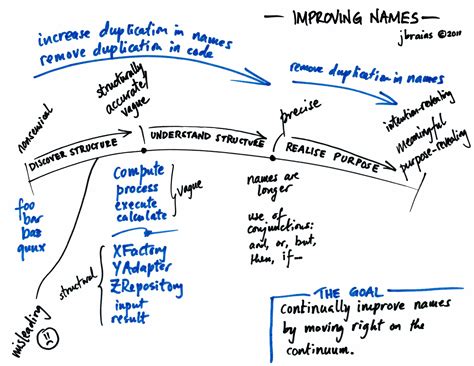 — IMPROVING NAMES —
jbrains ©2011
increase duplication in names
remove duplication in code
remove duplication in names
nonsensical
structurally
accurate/
vague
precise
intention-revealing
meaningful
purpose-revealing
DISCOVER STRUCTURE
UNDERSTAND STRUCTURE
REALISE PURPOSE
foo
bar
baz
quux
compute
process
execute
calculate
vague
XFactory
YAdapter
ZRepository
input
result
structural
names are
longer
use of
conjunctions:
and, or, but,
then, if—
misleading
THE GOAL
continually improve names
by moving right on the
continuum.